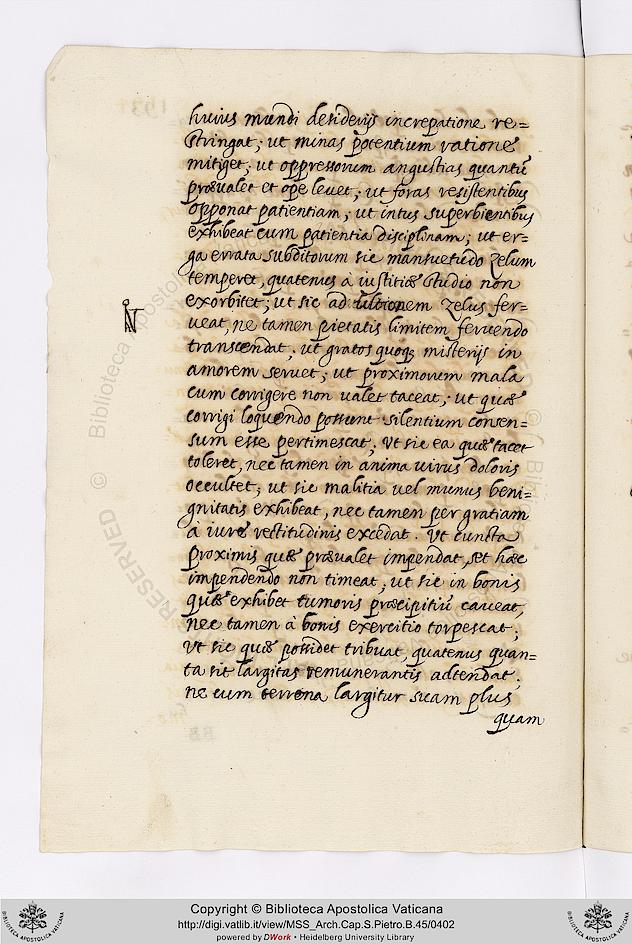 huius mundi desiderijs increpatione re=
stringat; ut minas potentium ratione
mitiget; ut oppressorum angustias quantũ
præualet et ope leuet; ut foras resistentibus
opponat patientiam; ut intus superbientibus
exhibeat cum patientia disciplinam; ut er=
ga errata subditorum sic mansuetudo zelum
temperet, quatenus à iustitiæ studio non
exorbitet; ut sic ad ultionem zelus fer=
N
ueat, ne tamen pietatis limitem feruendo
transcendat; ut gratos quoq; misterijs in
amorem seruet; ut proximorum mala
cum corrigere non ualet taceat; ut quæ
corrigi loquendo possunt silentium consen=
sum esse pertimescat; Ut sic ea quæ tacet
toleret, nec tamen in anima uirus doloris
occultet; ut sic malitia uel munus beni=
gnitatis exhibeat, nec tamen per gratiam
à iure rectitudinis excedat. Ut cuncta
proximis quæ præualet impendat, set hæc
impendendo non timeat; ut sic in bonis
quæ exhibet tumoris præcipitiũ caueat,
nec tamen à bonis exercitio torpescat;
Ut sic quæ possidet tribuat, quatenus quan=
ta sit largitas remunerantis adtendat.
ne cum terrena largitur suam plus
quam
© Biblioteca Apostolica
RESERVED ©
Copyright © Biblioteca Apostolica Vaticana
http://digi.vatlib.it/view/MSS_Arch.Cap.S.Pietro.B.45/0402
powered by DWork • Heidelberg University Library